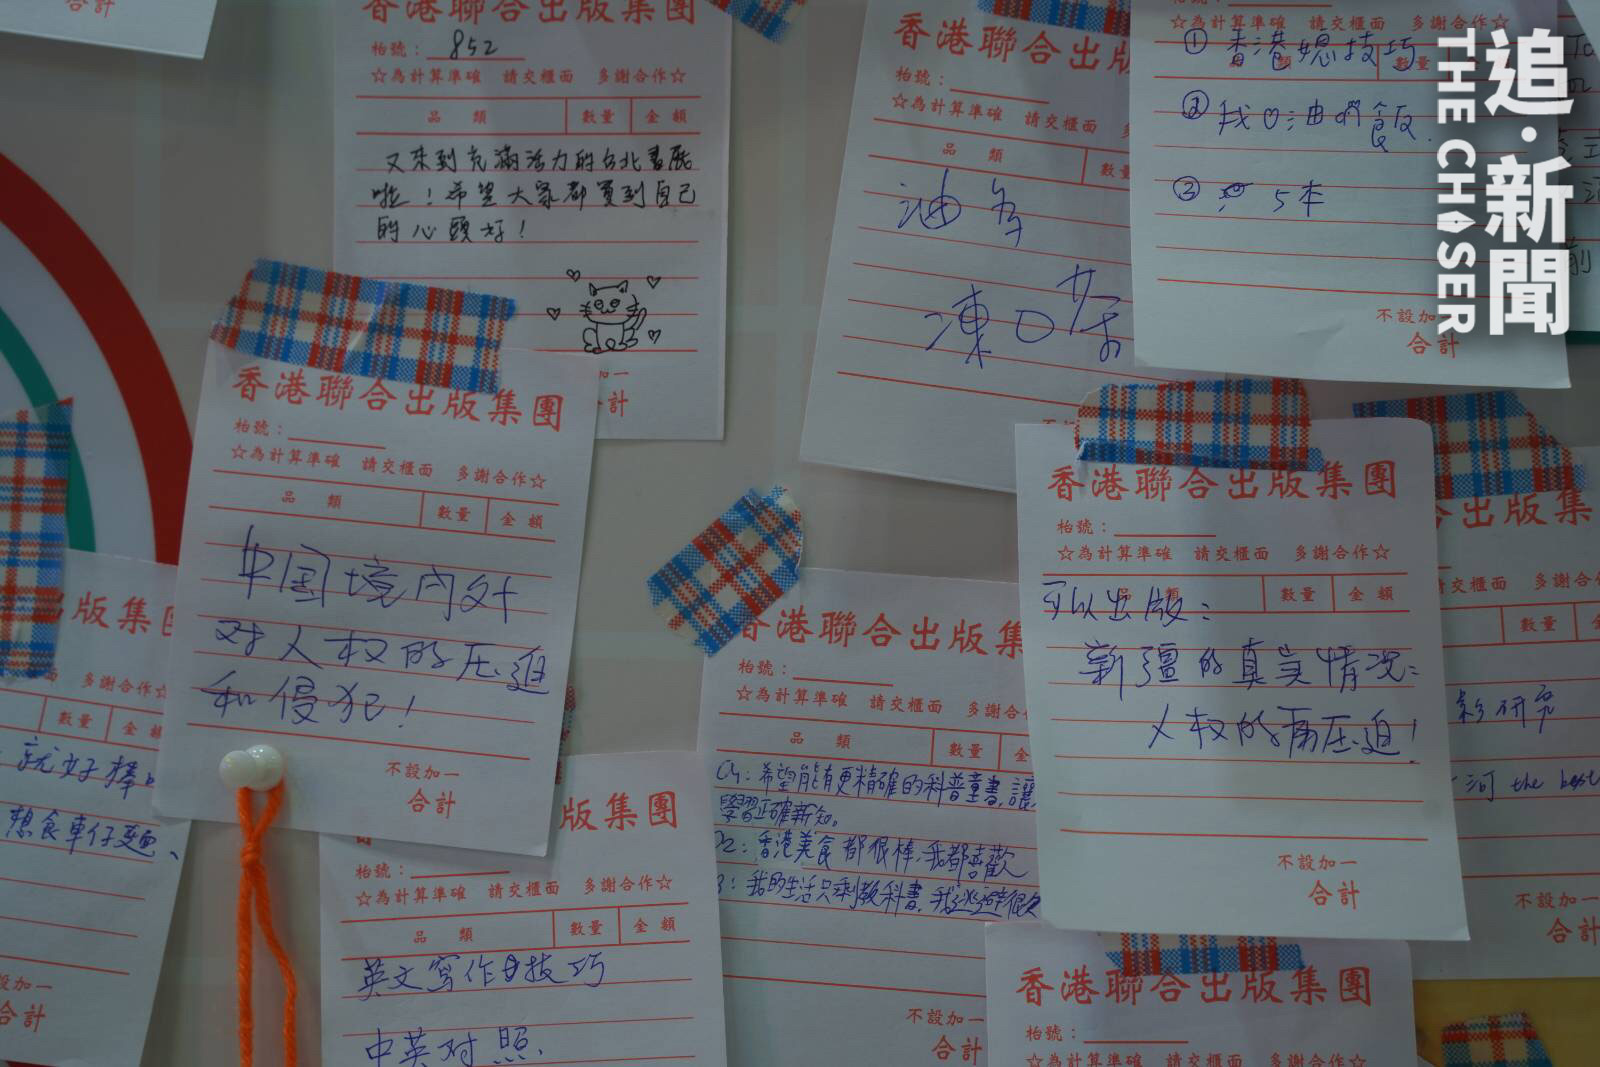 合計
香港聯合出版集團
枱號： 852
☆為計算準確 請交櫃面 多謝合作☆
品 類 數量 金 額
又來到充滿活力的台北書展
啦！希望大家都買到自己
的心頭好！
加一
合計
香港聯合出版
枱號：
☆為計算準確 請交櫃面
品 類 數量
油多
凍
☆為計算準確 請交櫃面 多謝合作☆
數量
②
③ 5本
不設加一
合計
追·新聞
THE CHASER
香港聯合出版集團
枱號：
☆為計算準確 請交櫃面 多謝合作☆
品 類 數量 金 額
中国境内外
对人权的压迫
和侵犯！
不設加一
合計
香港聯合出版集團
枱號：
☆為計算準確 請交櫃面 多謝合作☆
品 類 數量 金 額
可以出版：
新疆的真实情况：
人权的 压迫！
不設加一
合計
出版集
多謝合作☆
數量 金 額
就好棒
想食車仔麵、
設加一
合計
香港聯合出版集
枱號：
☆為計算準確 請交櫃面 多謝合作
品 類 數量 金
Q1：希望能有更精確的科普童書，讓
學習正確新知。
2：香港美食都很棒，我都喜歡
：我的生活只剩教科書，我逃避很久
不設加一
合計
版集團
枱號：
☆為計算準確 請交櫃面 多謝合作☆
品 類 數量 金 額
英文寫作 技巧
中英对照
出版集
交櫃面 多謝合
數量
研究
河 the best
不設加一
合計
香港聯合出版集團
枱號：
☆為計算準確 請交櫃面 多謝合作☆